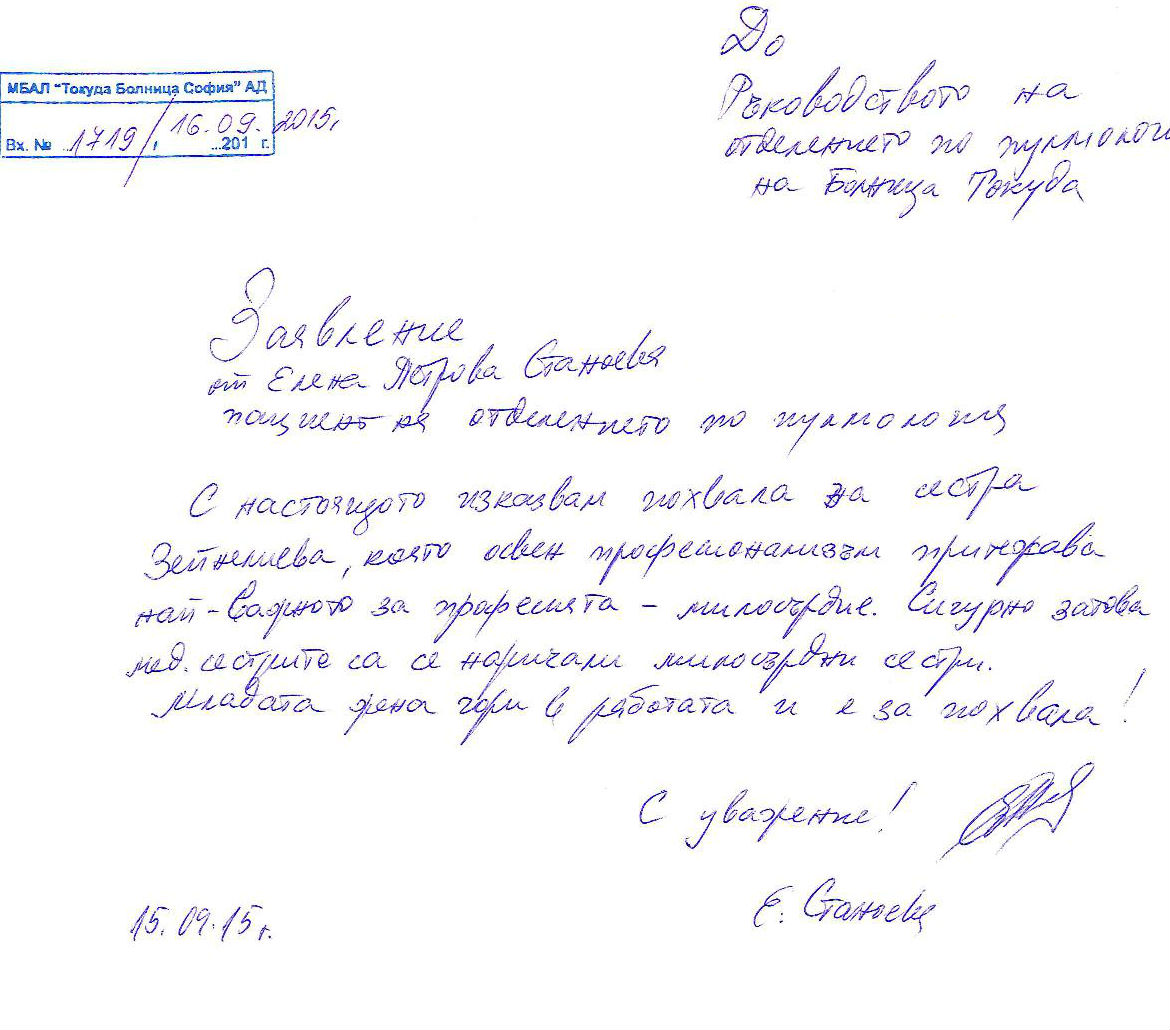 МБАЛ "Токуда Болница София" АД
Вх. № 1719 / 16.09. 2015г.
...201 г.
До
Ръководството на
отделението по пулмологи
на Болница Токуда
Заявление
от Елена Петрова Станоева
пациент на отделението по пулмология
С настоящото изказвам похвала за сестра
Зейнелиева, която освен професионализъм притежава
най-важното за професията - милосърдие. Сигурно затова
мед. сестрите са се наричали милосърдни сестри.
Младата жена гори в работата и е за похвала!
С уважение!
Е. Станоева
15.09.15г.